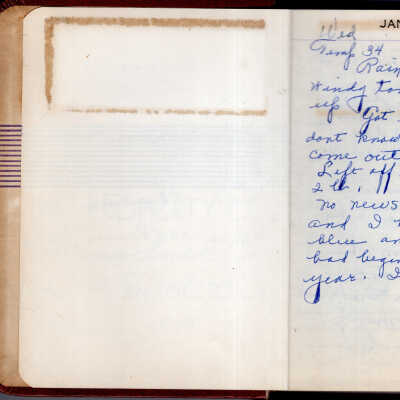 JAN
Wed
Temp 34
Rain
Windy to
up
Got
dont know
come out
Left off
2 lb.
no news
and I
blue an
bad begin
year. I